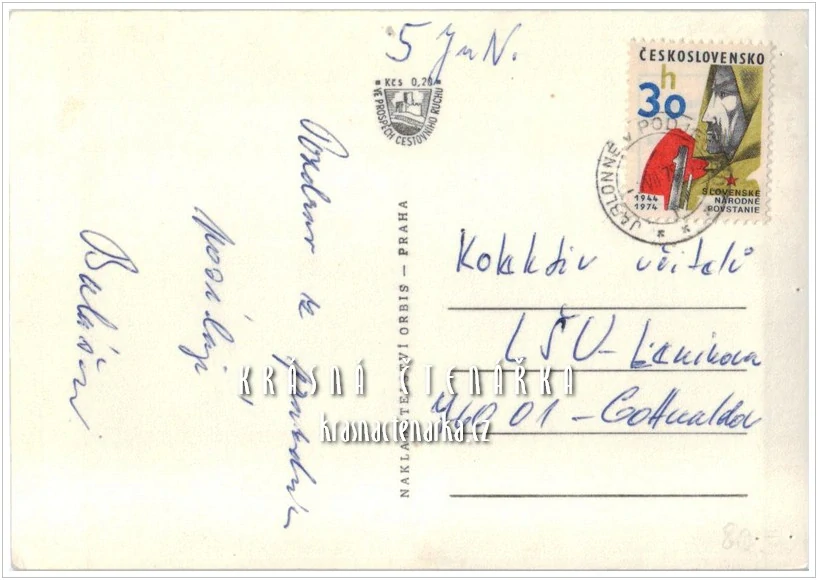 5 JuN.
Kčs 0,20
VE PROSPĚCH CESTOVNÍHO RUCHU
ČESKOSLOVENSKO
30 h
1944
1974
SLOVENSKÉ
NÁRODNÉ
POVSTANIE
JABLONNÉ V POD
Pozdrav z
posílají
NAKLADATELSTVÍ ORBIS – PRAHA
Kolektiv učitelů
LŠU – Leninova
760 01 – Gottwaldov
KRÁSNÁ ČTENÁŘKA
krasnactenarka.cz